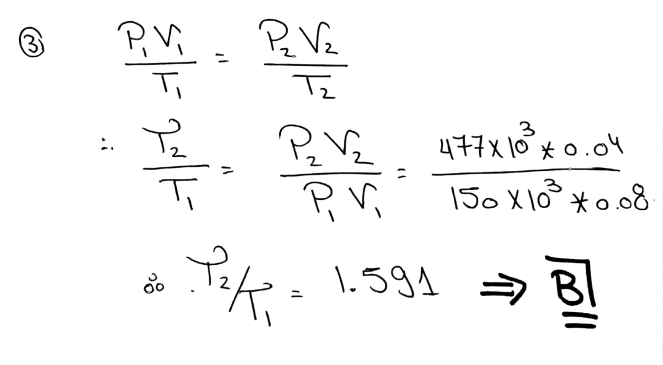 ③ P₁V₁/T₁ = P₂V₂/T₂
∴ T₂/T₁ = P₂V₂/P₁V₁ = 477×10³*0.04/150×10³*0.08
∴ T₂/T₁ = 1.591 ⇒ B